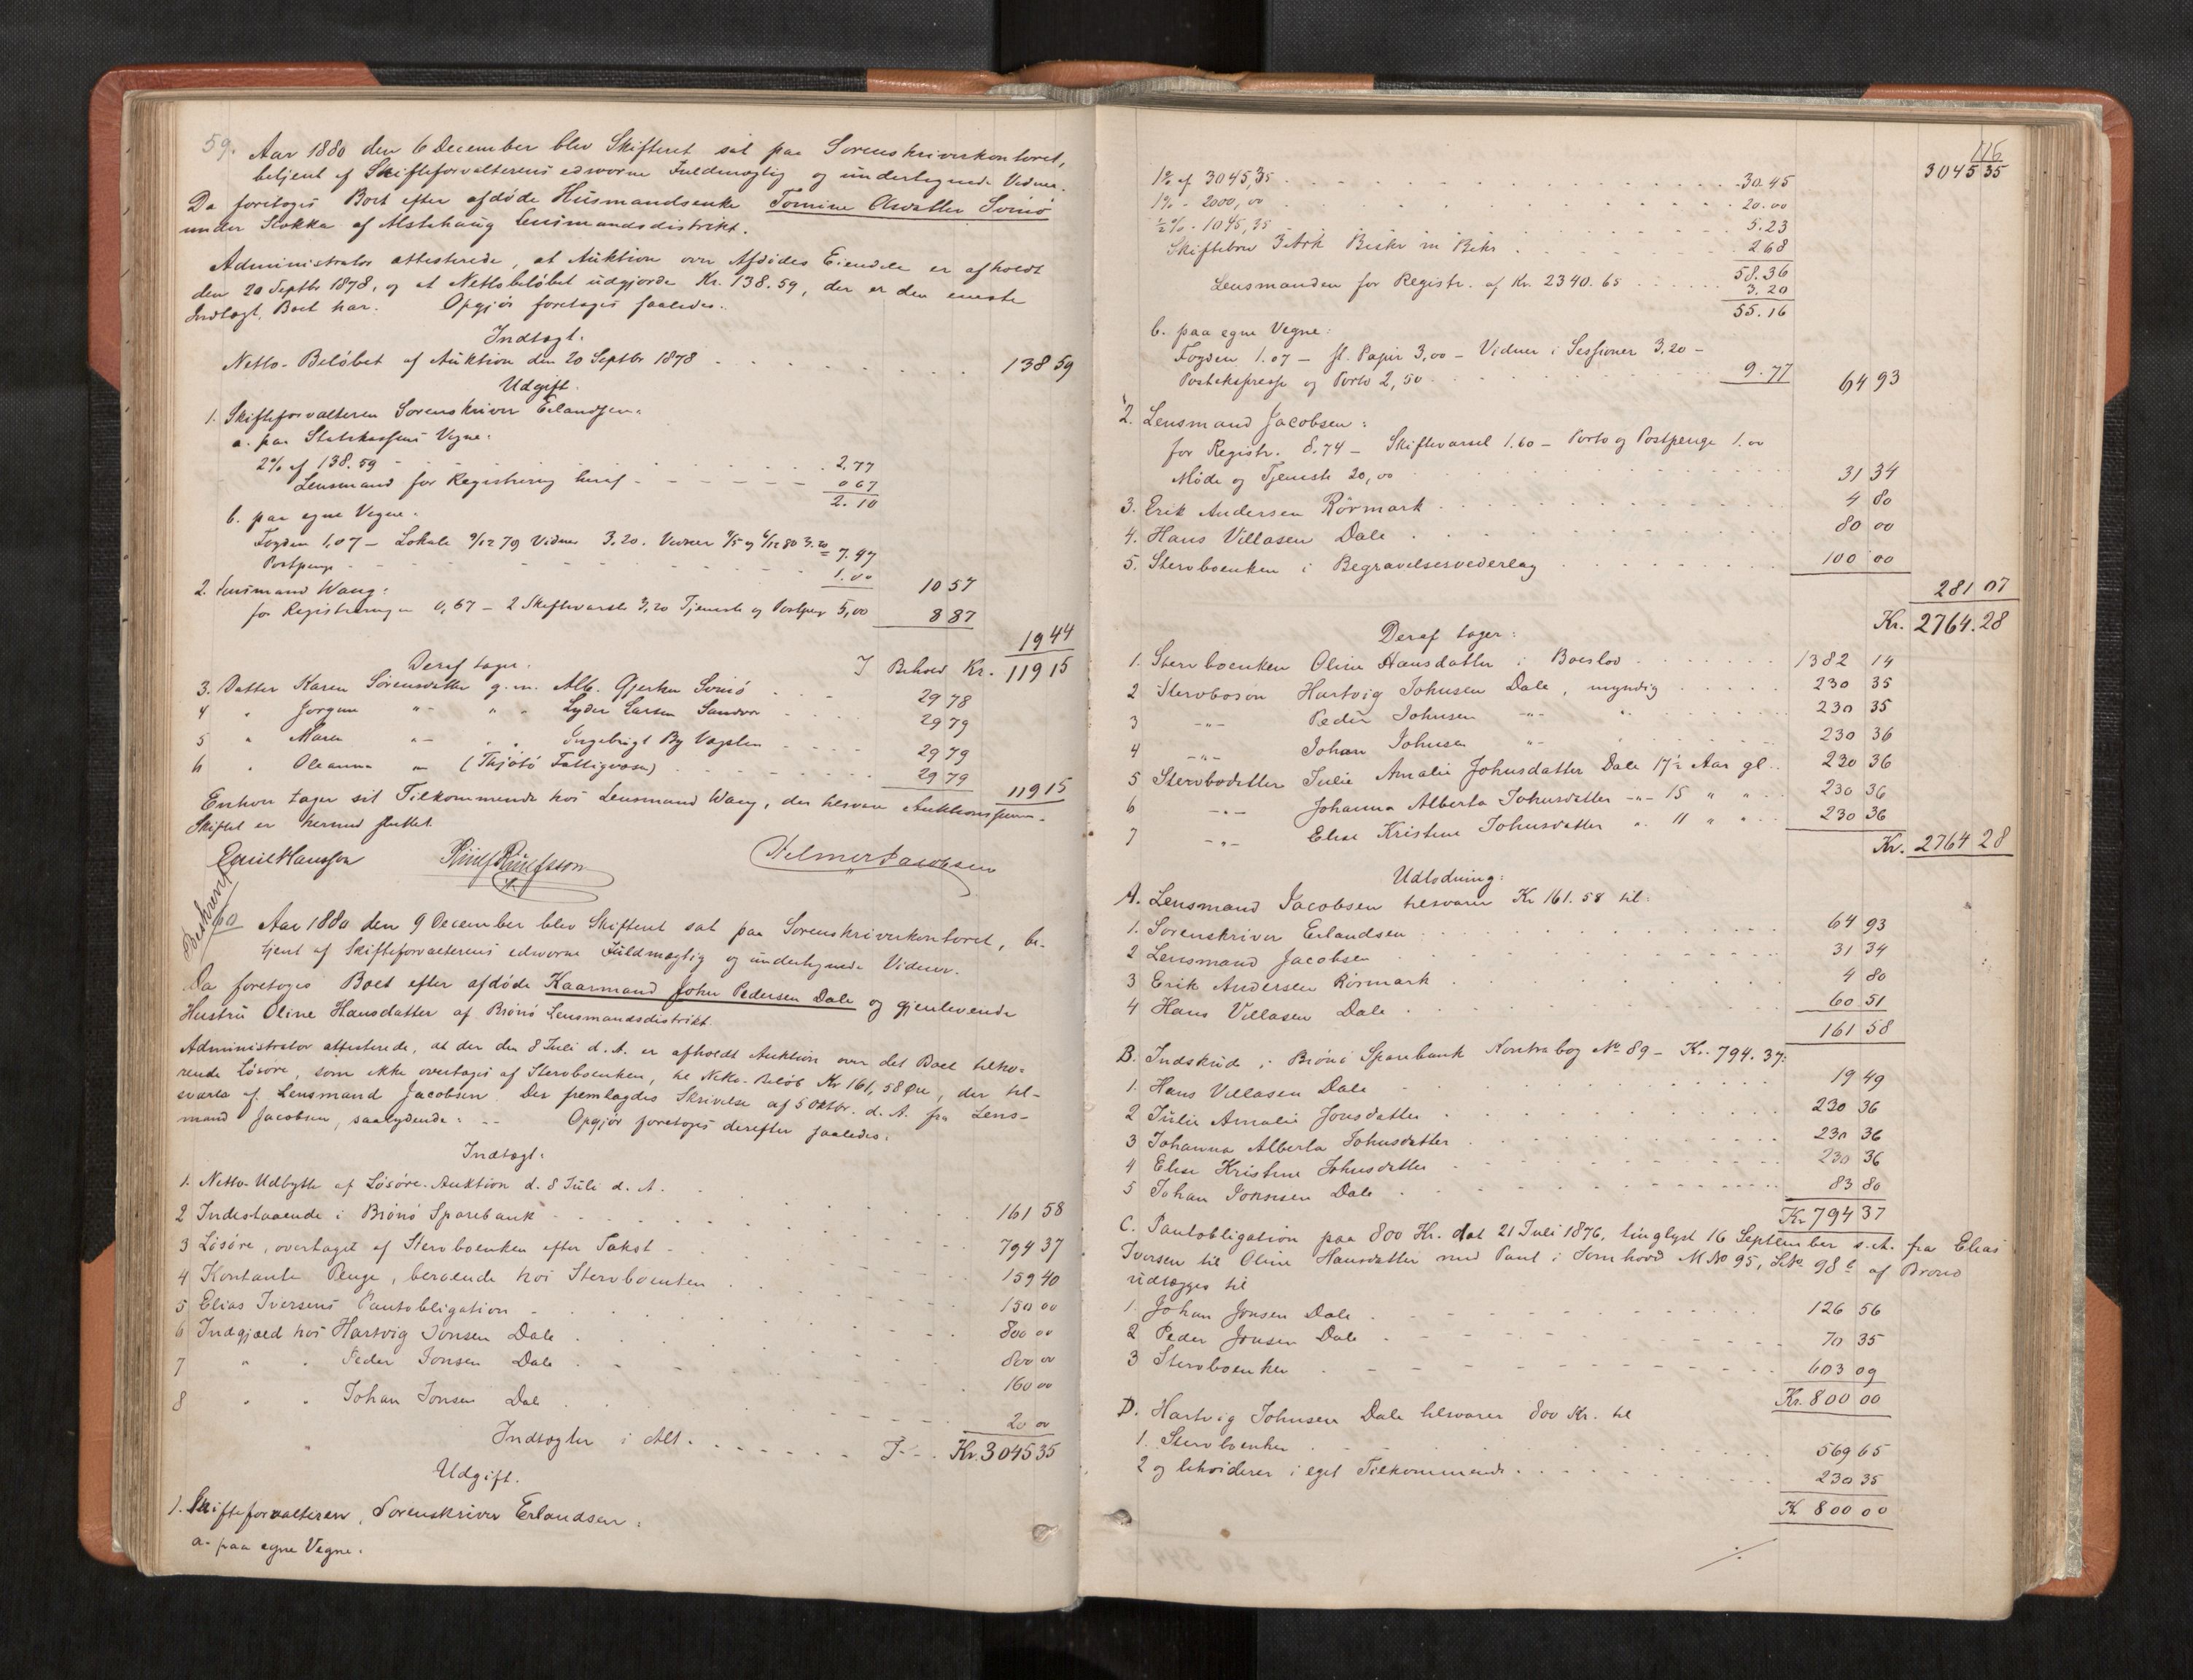 59. Aar 1880 den 6 December blev Skifteret sat paa Sorenskriverkontoret,
betjent af Skifteforvalterens edsvorne Fuldmægtig og undertegnede Vidner.
Da foretoges Boet efter afdøde Husmandsenke Tomine Svinø
under Stokka af Alstehaug Lensmandsdistrikt.
Administrator attesterede, at Auktion over Afdødes Eiendele er afholdt
den 20 Septbr 1878, og at Nettobeløbet udgjorde Kr. 138.59, der er den eneste
Indtægt Boet har. Opgjør foretoges saaledes:
Indtægt.
Netto-Beløbet af Auktion den 20 Septbr 1878 138 59
Udgift.
1. Skifteforvalteren Sorenskriver Erlandsen:
a. paa Statskassens Vegne:
2% af 138.59 2.77
Lensmand for Registrering heraf 0 67
2.10
b. paa egne Vegne.
Fogden 1,07 – Lokale 9/12 79 Vidner 3.20. Vidner 9/5 og 6/12 80 3.20 = 7.47
Postpenge 1.00
10 57
2. Lensmand Wang:
for Registreringen 0,67 – 2 Skiftevarsler 3,20 Tjeneste og Postpenge 5,00 8 87
19 44
I Behold Kr. 119 15
Deraf tager:
3. Datter Karen Sørensdatter g. m. Alb. Gjertsen Svinø 29 78
4 " Jørgine " " " Lyder Larsen Sandvær 29 79
5 " Maren " " " Ingebrigt By Vagsten 29 79
6 " Oleanna " (Thjøtø Fattigvæsen) 29 79
119 15
Enhver tager sit Tilkommende hos Lensmand Wang, der tilsvarer Auktionssummen.
Skiftet er hermed sluttet.
Emil Hansson Hilmer Jacobsen
Beskrevet
60 Aar 1880 den 9 December blev Skifteret sat paa Sorenskriverkontoret, be-
tjent af Skifteforvalterens edsvorne Fuldmægtig og undertegnede Vidner.
Da foretoges Boet efter afdøde Kaarmand John Pedersen Dale og gjenlevende
Hustru Oline Hansdatter af Brønø Lensmandsdistrikt.
Administrator attesterede, at der den 8 Juli d. A. er afholdt Auktion over det Boet tilhø-
rende Løsøre, som ikke overtages af Stervboenken, til Netto-Beløb Kr 161,58 Øre, der til-
svares af Lensmand Jacobsen. Der fremlagdes Skrivelse af 5 Oktbr. d. A. fra Lens-
mand Jacobsen, saalydende: -- Opgjør foretoges derefter saaledes:
Indtægt.
1. Netto-Udbytte af Løsøre-Auktion d. 8 Juli d. A. 161 58
2 Indestaaende i Brønø Sparebank 794 37
3 Løsøre, overtaget af Stervboenken efter Takst 159 40
4 Kontante Penge, beroende hos Stervboenken 150 00
5 Elias Iversens Pantobligation 800 00
6 Indgjæld hos Hartvig Jonsen Dale 800 00
7 " " Peder Jonsen Dale 160 00
8 " " Johan Jonsen Dale 20 00
Indtægter i Alt I Kr. 3045 35
Udgift.
1. Skifteforvalteren, Sorenskriver Erlandsen:
a. paa egne Vegne.
116
3045 35
1% af 3045,35 30.45
1% - 2000,00 20.00
½% - 1045,35 5.23
Skiftebrev 3 Ark Beskr m Bekr. 2 68
58.36
Lensmanden for Registr. af Kr. 2340.65 3.20
55.16
b. paa egne Vegne:
Fogden 1.07 – st. Papir 3,00 – Vidner i Sessioner 3.20 –
Postekspresse og Porto 2,50 9.77 64 93
2. Lensmand Jacobsen:
for Registr. 8.74 – Skiftevarsel 1.60 – Porto og Postpenge 1.00
Møde og Tjeneste 20,00 31 34
3. Erik Andersen Rørmark 4 80
4. Hans Villasen Dale 80 00
5. Stervboenken i Begravelsesvederlag 100 00
281 07
Kr. 2764.28
Deraf tager:
1. Stervboenken Oline Hansdatter i Boeslod 1382 14
2 Stervbosøn Hartvig Johnsen Dale, myndig 230 35
3 -"- Peder Johnsen -"- " 230 35
4 -"- Johan Johnsen -"- " 230 36
5 Stervbodatter Julie Amalie Johnsdatter Dale 17½ Aar gl. 230 36
6 -"- Johanna Alberta Johnsdatter -"- 15 " " 230 36
7 -"- Elise Kristine Johnsdatter " 11 " " 230 36
Kr. 2764 28
Udlodning:
A. Lensmand Jacobsen tilsvarer Kr 161.58 til:
1. Sorenskriver Erlandsen 64 93
2 Lensmand Jacobsen 31 34
3 Erik Andersen Rørmark 4 80
4 Hans Villasen Dale 60 51
161 58
B. Indskud i Brønø Sparebank Kontrabog No 89 – Kr. 794.37:
1. Hans Villasen Dale 19 49
2 Julie Amalie Jonsdatter 230 36
3 Johanna Alberta Johnsdatter 230 36
4 Elise Kristine Johnsdatter 230 36
5 Johan Jonsen Dale 83 80
Kr 794 37
C. Pantobligation paa 800 Kr. dat 21 Juli 1876, tinglyst 16 September s. A. fra Elias
Iversen til Oline Hansdatter med Pant i M No 95, L No 98 c af Brønø
udlægges til
1. Johan Jonsen Dale 126 56
2 Peder Jonsen Dale 70 35
3 Stervboenken 603 09
Kr. 800 00
D. Hartvig Johnsen Dale tilsvarer 800 Kr. til
1. Stervboenken 569 65
2 og likviderer i eget Tilkommende 230 35
Kr 800 00